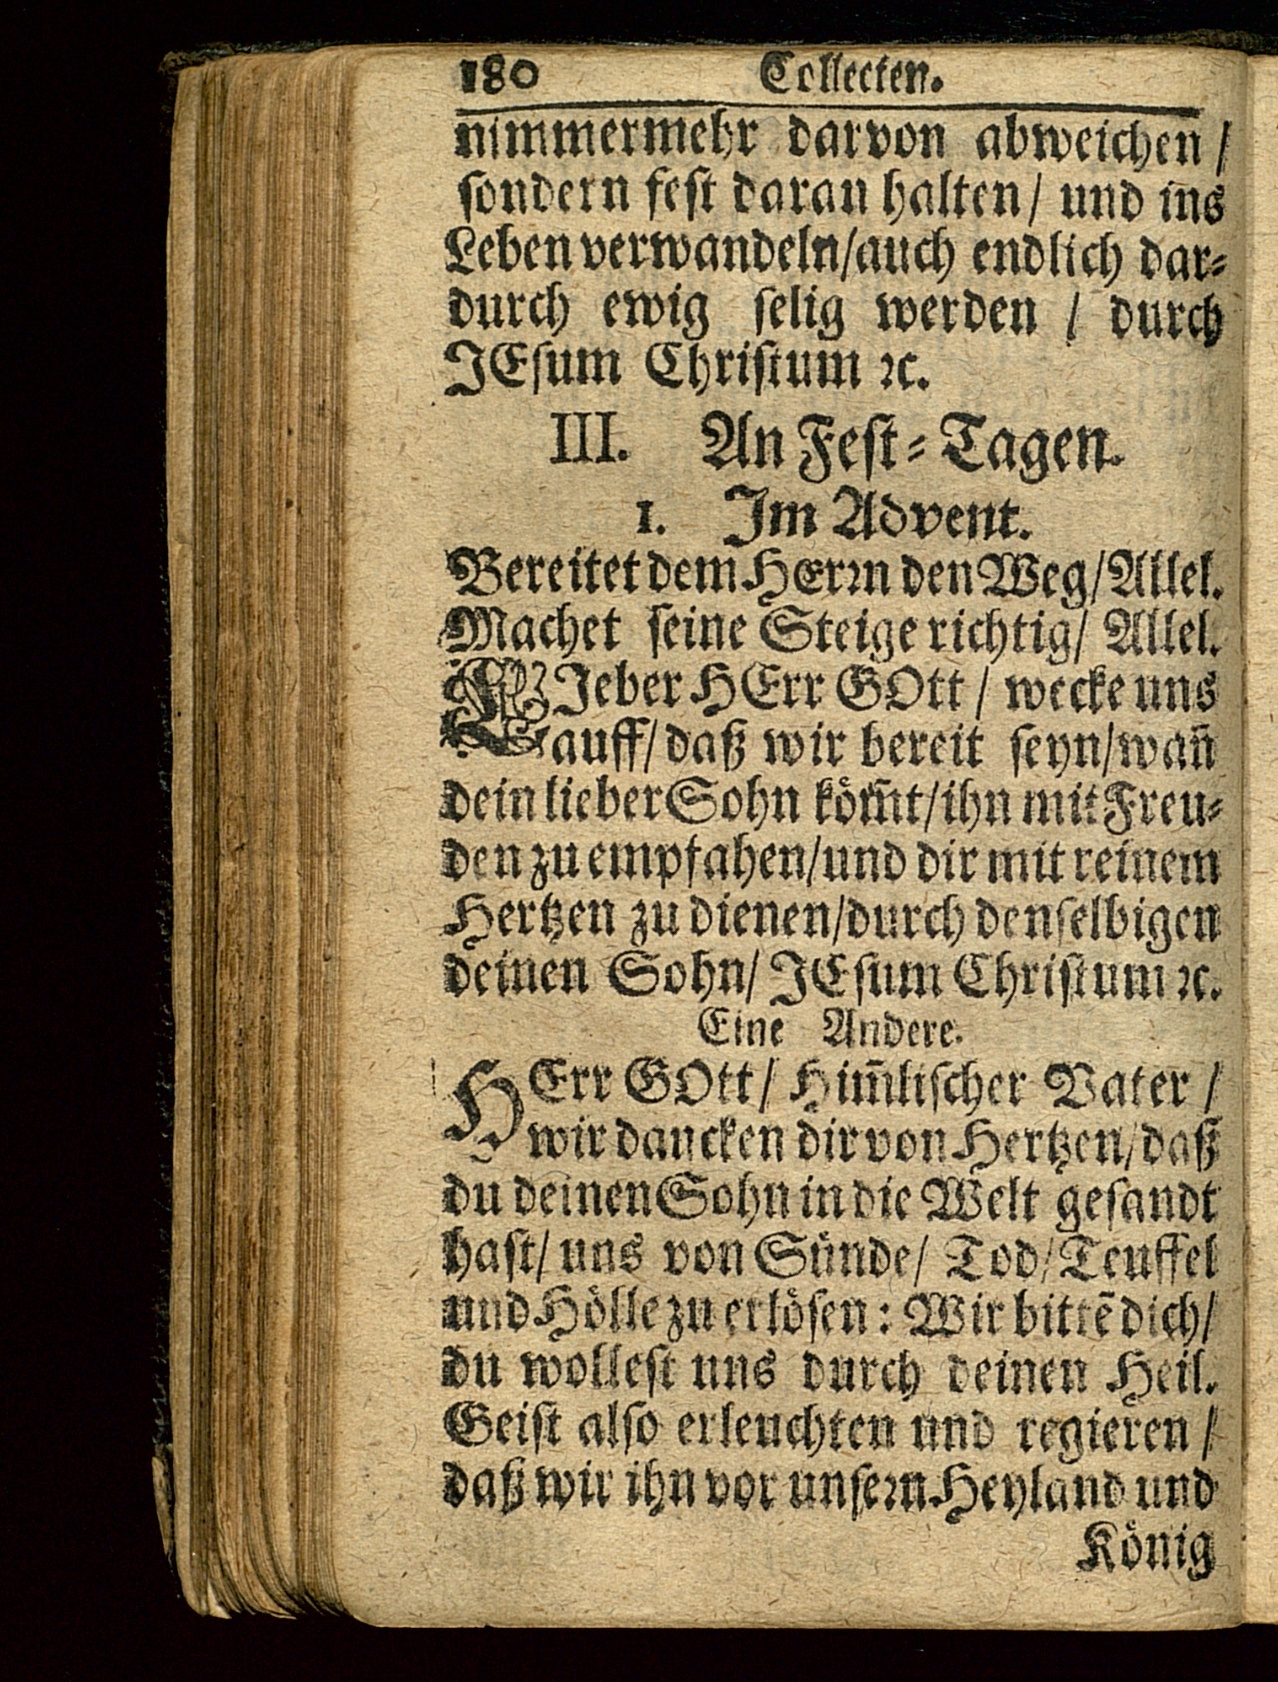 180 Collecten.
nimmermehr darvon abweichen /
sondern fest daran halten/ und ins
Leben verwandeln/auch endlich dar-
durch ewig selig werden / durch
JEsum Christum ꝛc.
III. An Fest-Tagen.
1. Jm Advent.
Bereitet dem HErrn den Weg/Allel.
Machet seine Steige richtig/ Allel.
LJeber HErr GOtt / wecke uns
auff/daß wir bereit seyn/wañ
dein lieber Sohn köm̃t/ihn mit Freu-
den zu empfahen/und dir mit reinem
Hertzen zu dienen/durch denselbigen
deinen Sohn/ JEsum Christum ꝛc.
Eine Andere.
HErr GOtt/ Him̃lischer Vater /
wir dancken dir von Hertzen/daß
du deinen Sohn in die Welt gesandt
hast/ uns von Sünde/ Tod/Teuffel
und Hölle zu erlösen: Wir bittẽ dich/
du wollest uns durch deinen Heil.
Geist also erleuchten und regieren /
daß wir ihn vor unsern Heyland und
König